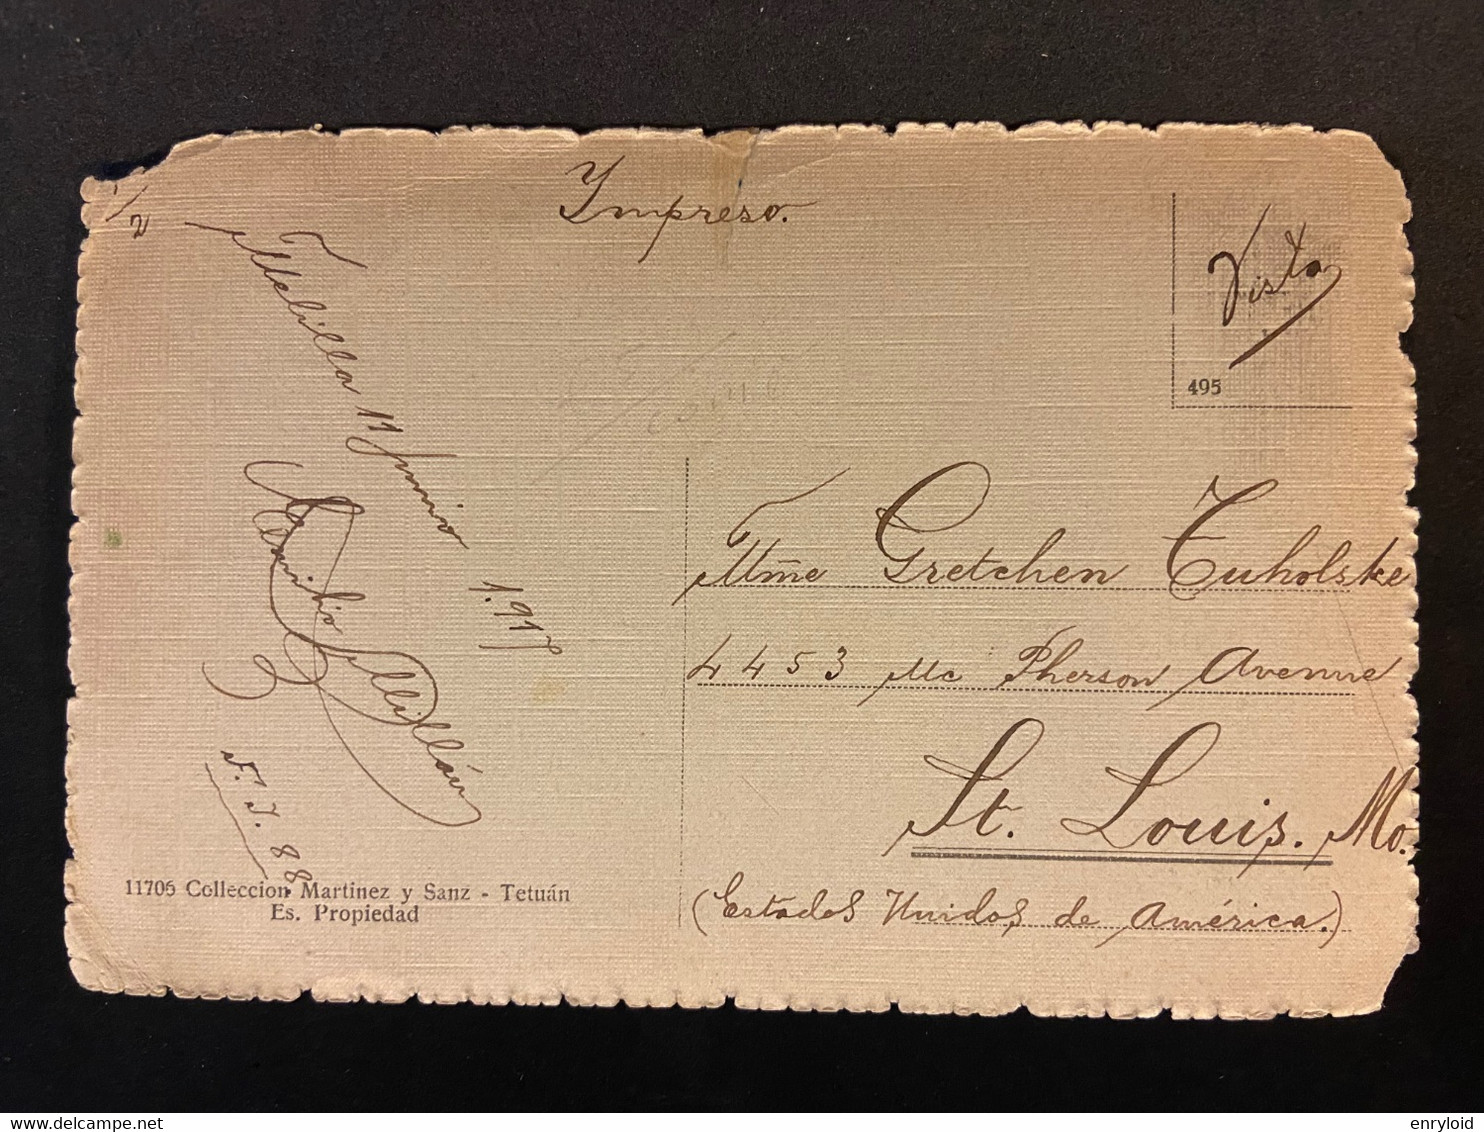 Impreso.
1/2
Vista
495
Melilla 11 Junio 1.917
Millán
F. J. 88.
Mme Gretchen Tuholske
4453 Mc Pherson Avenue
St. Louis. Mo.
(Estados Unidos de América.)
11705 Colleccion Martinez y Sanz - Tetuán
Es. Propiedad
enryloid
delcampe.net